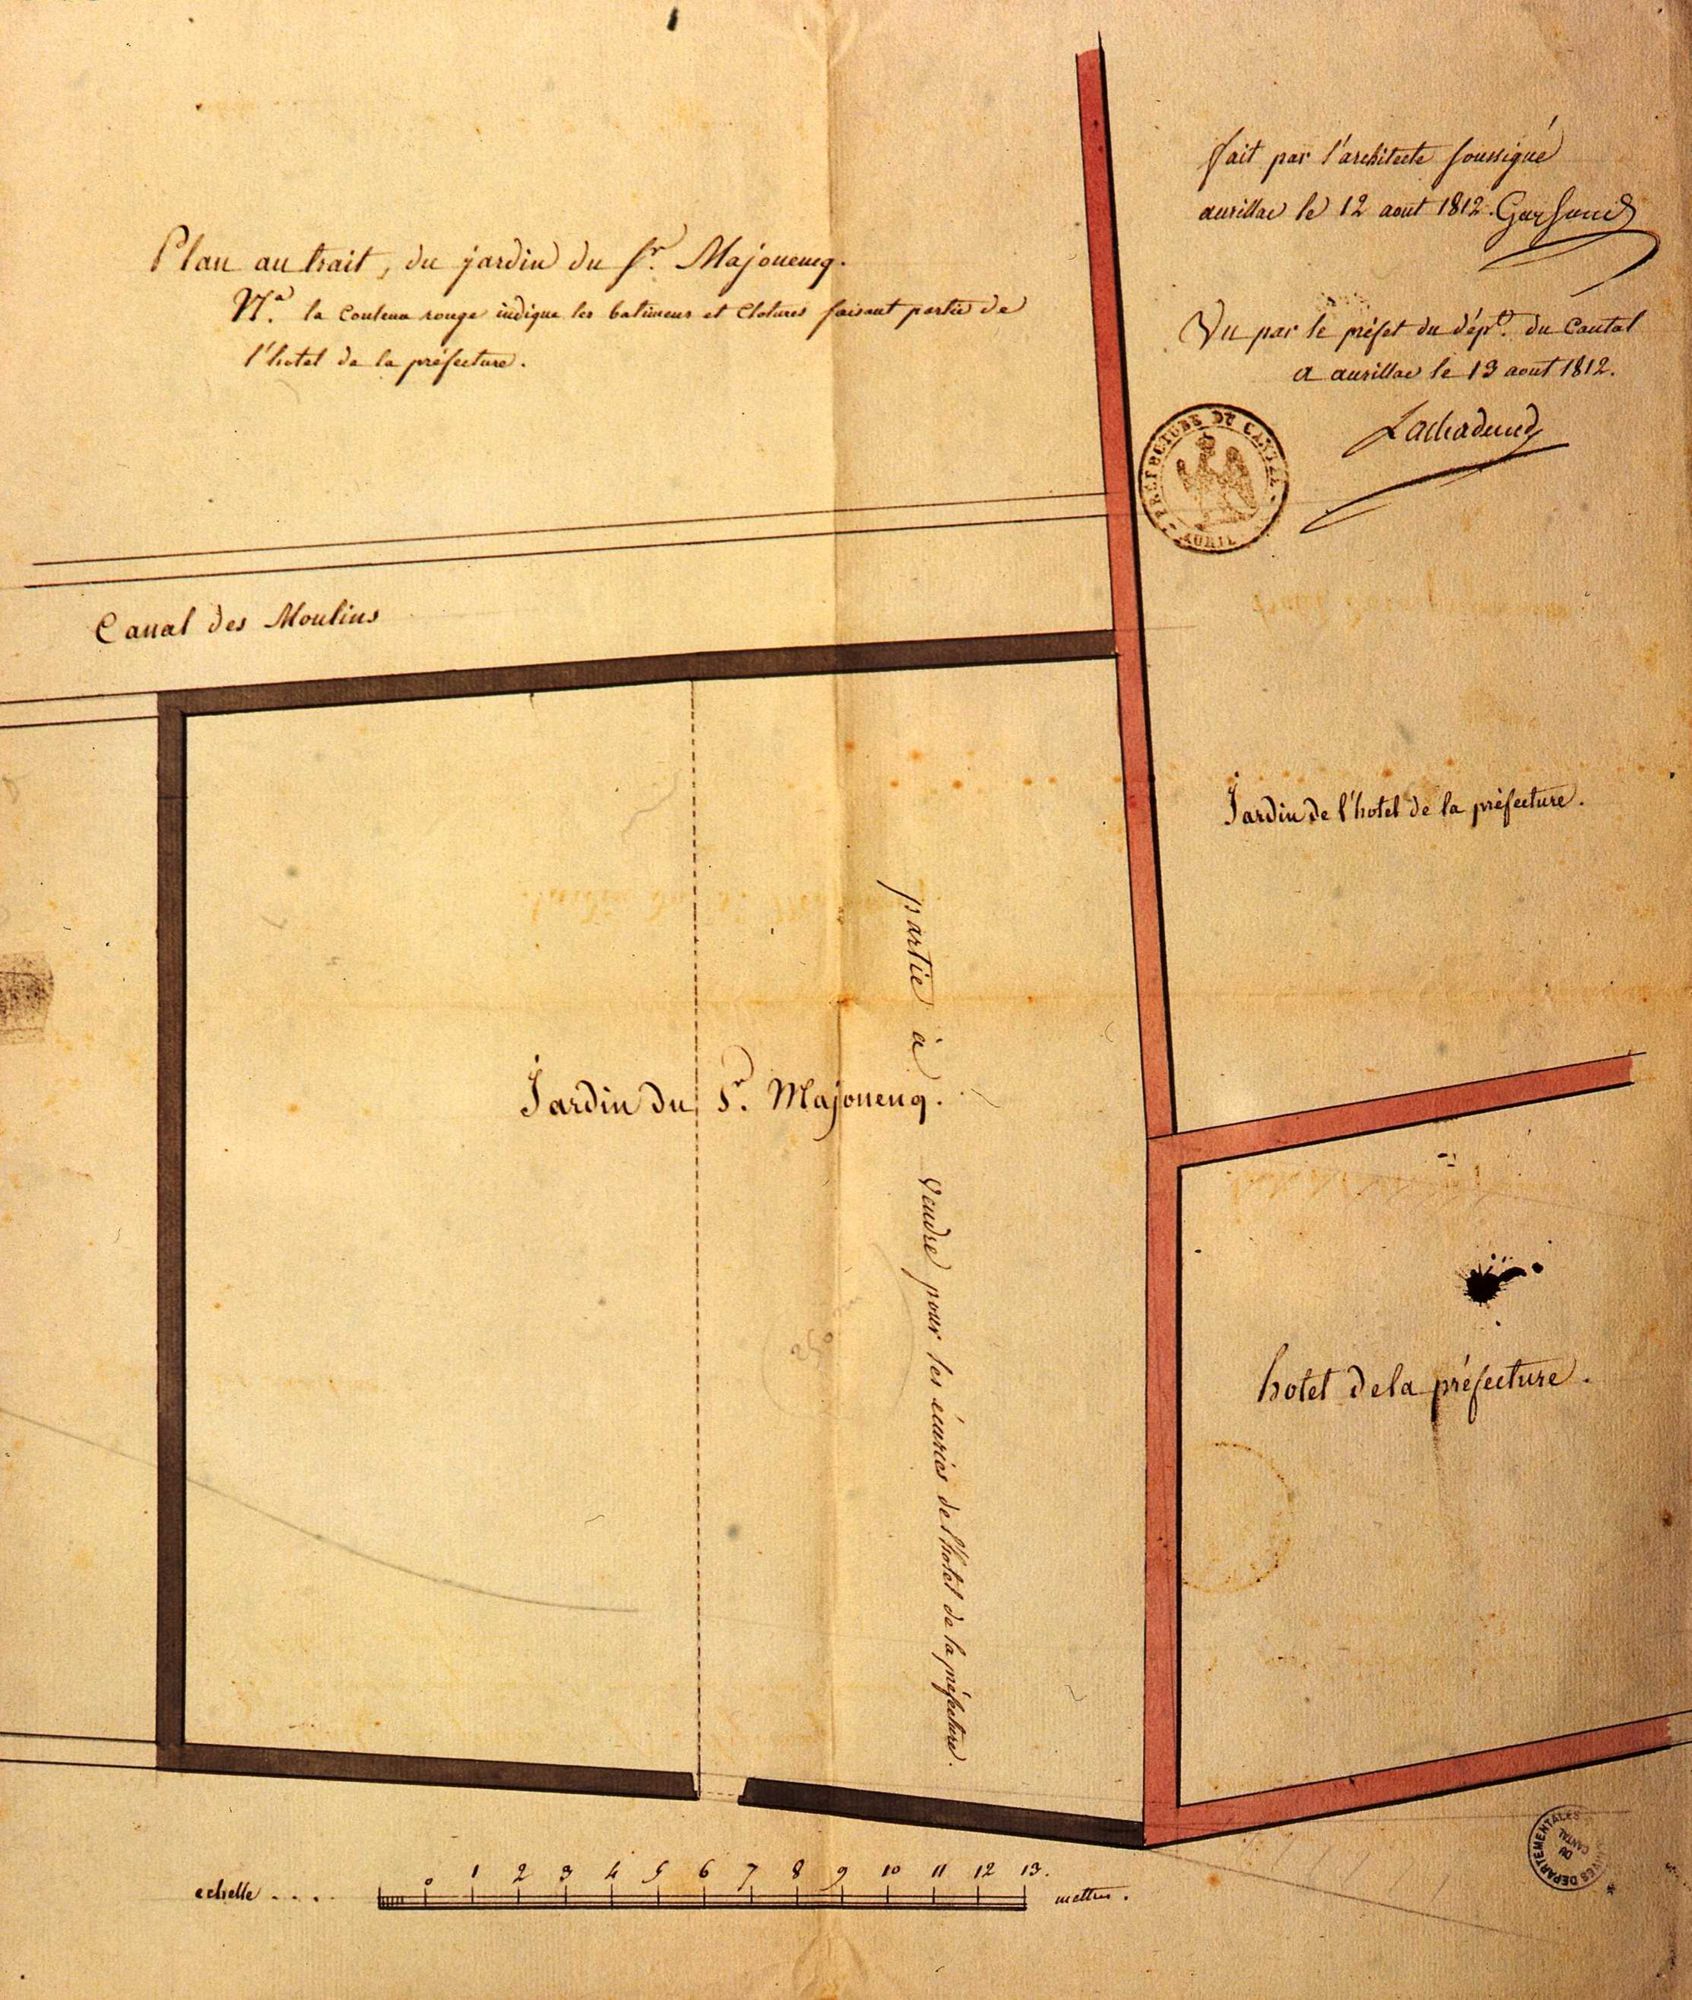 Plan au trait, du jardin du Sr. Majonenq.
Na. la couleur rouge indique les batimens et clotures faisant partie de
l'hotel de la préfecture.
fait par l'architecte soussigné
aurillac le 12 aout 1812.
Vu par le préfet du dépt. du Cantal
a aurillac le 13 aout 1812.
Lachadenede
PREFECTURE DU CANTAL
AURIL
Canal des Moulins
Jardin de l'hotel de la préfecture.
Jardin du Sr. Majonenq.
partie à vendre pour les écuries de l'hotel de la préfecture.
hotel de la préfecture.
echelle . . . . 0 1 2 3 4 5 6 7 8 9 10 11 12 13. mettres.
ARCHIVES DEPARTEMENTALES
DU
CANTAL